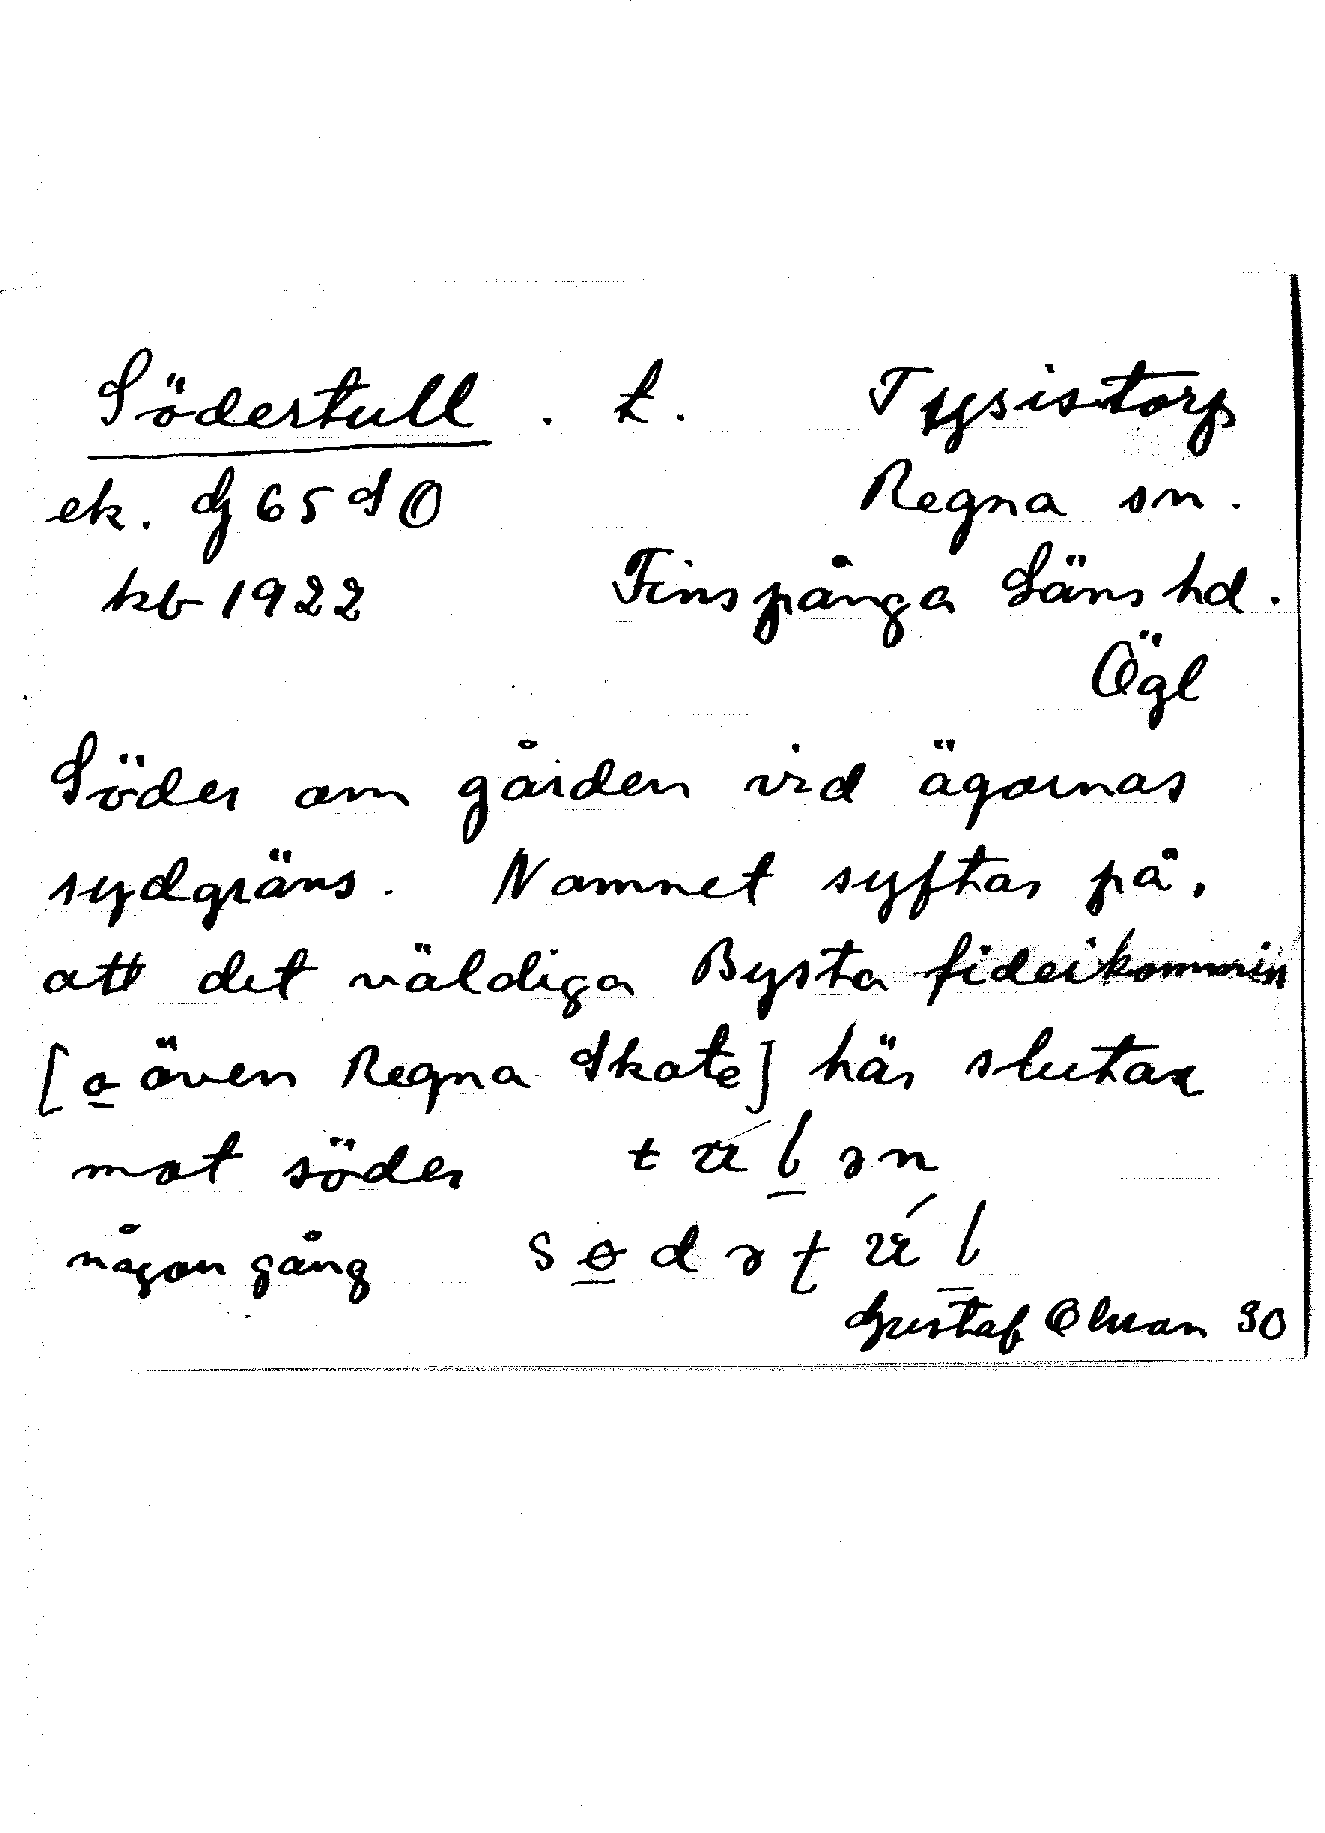 Södertull . t. Tysistorp
ek. G 65 d Ö Regna sn.
kb 1922 Finspånga Läns hd.
Ögl
Söder om gården vid ägornas
sydgräns. Namnet syftar på,
att det väldiga Bysta fideikommiss
[o även Regna Skate] här slutar
mot söder
någon gång
Gustaf Olsson 30